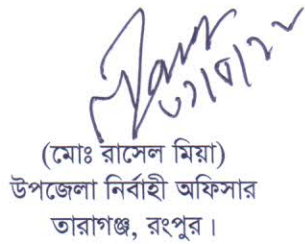 (মোঃ রাসেল মিয়া)
উপজেলা নির্বাহী অফিসার
তারাগঞ্জ, রংপুর।